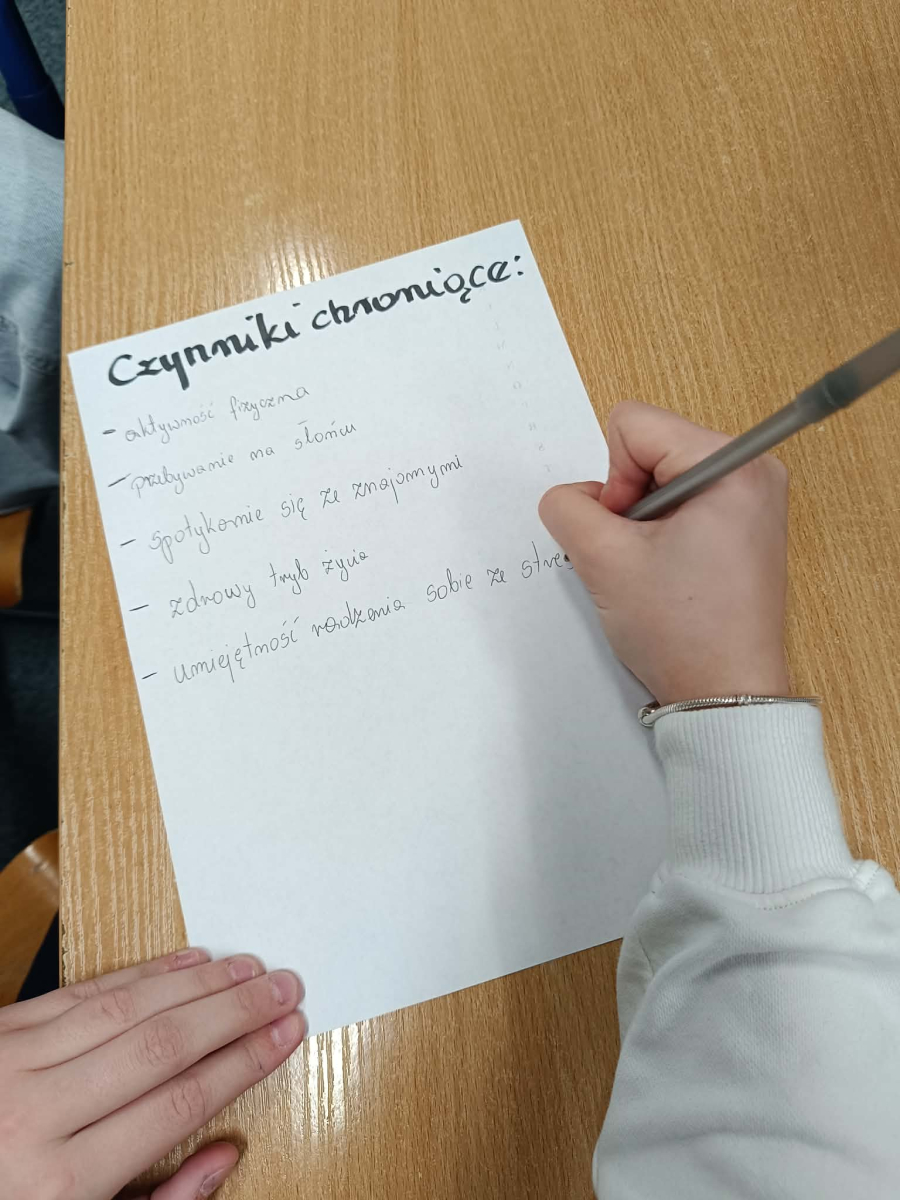 Czynniki chroniące:
- aktywność fizyczna
- przebywanie na słońcu
- spotykanie się ze znajomymi
- zdrowy tryb życia
- umiejętność radzenia sobie ze stres